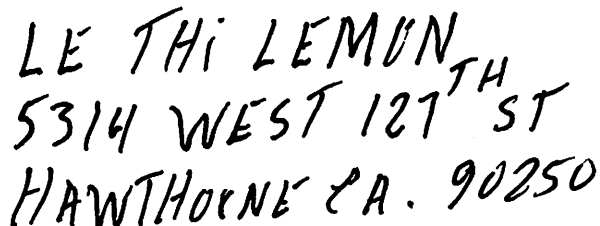 LE THi LEMON
5314 WEST 127TH ST
HAWTHORNE CA. 90250